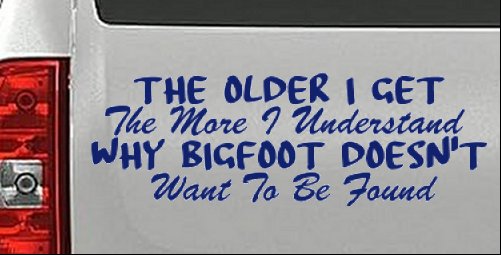 THE OLDER I GET
The More I Understand
WHY BIGFOOT DOESN'T
Want To Be Found